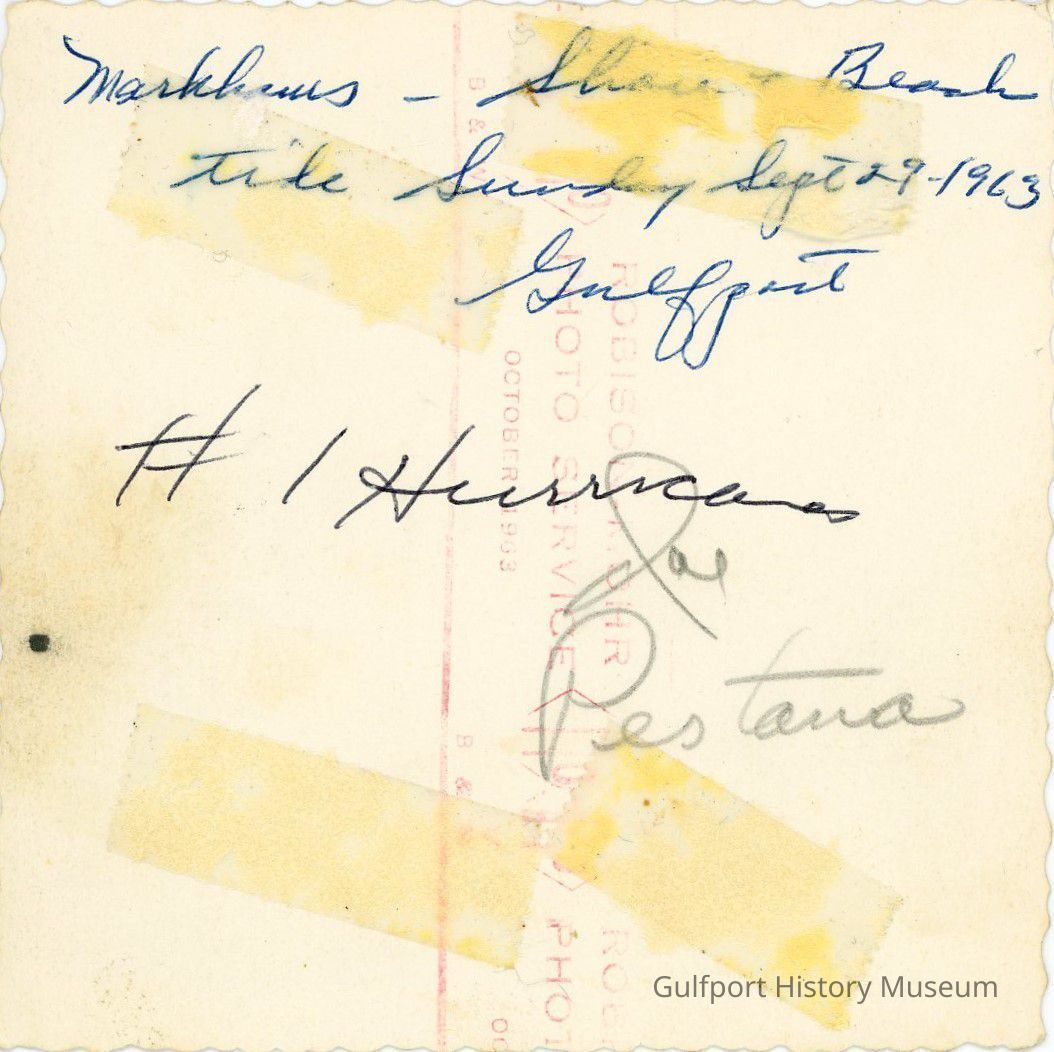 Markhams - Shore Beach
tide Sunday Sept 29-1963
Gulfport
# 1 Hurricane
Joe
Pestana
B & W
ROBISON
PHOTO SERVICE
OCTOBER 1963
B &
PHOT
Gulfport History Museum